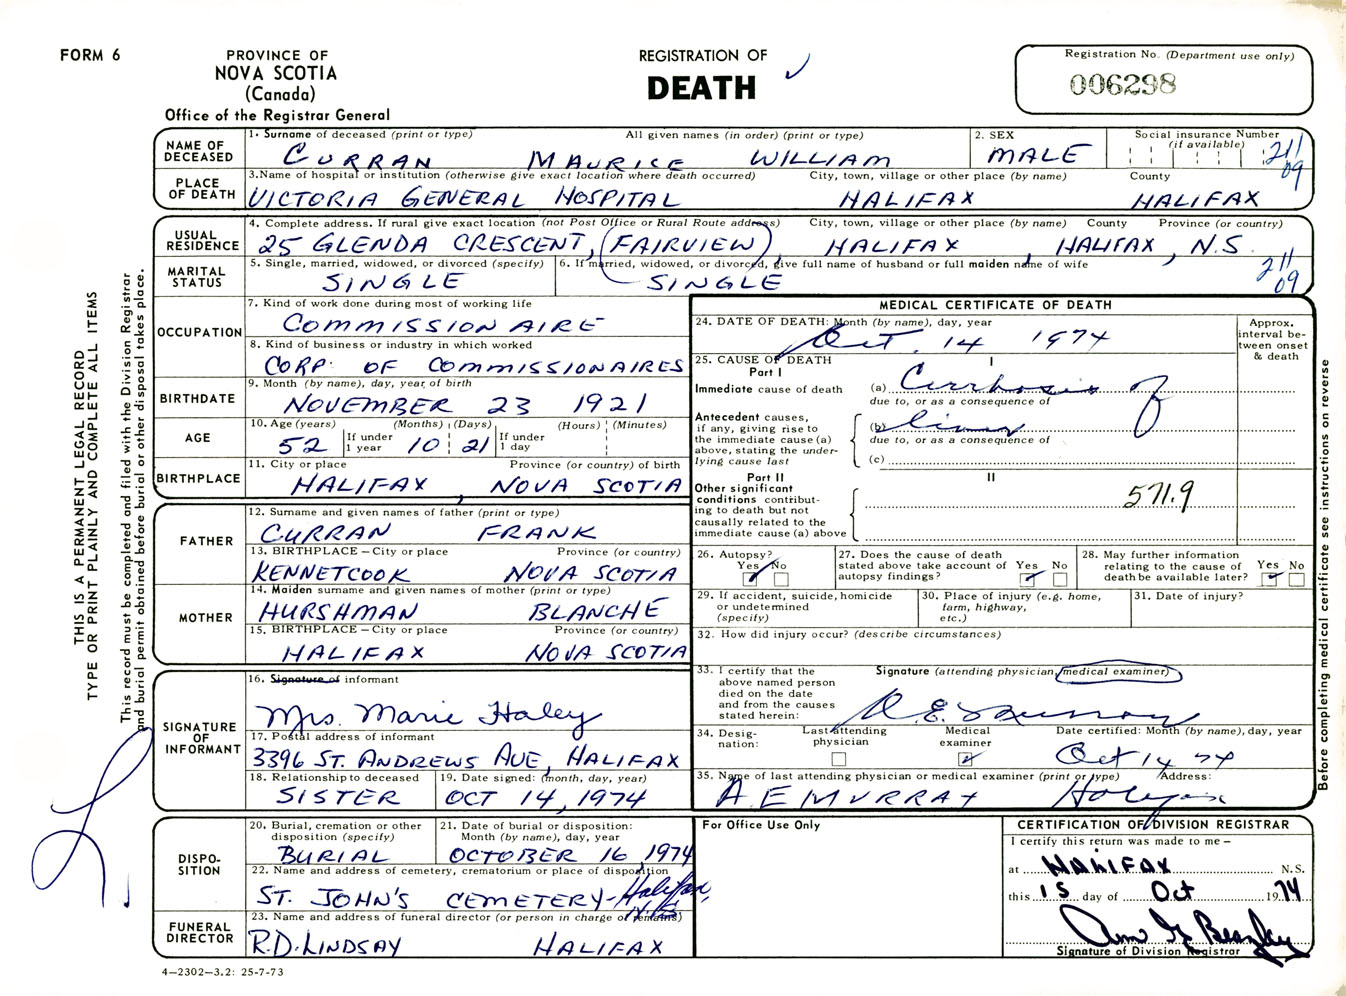 FORM 6
PROVINCE OF
NOVA SCOTIA
(Canada)
Office of the Registrar General
REGISTRATION OF
DEATH
Registration No. (Department use only)
006298
THIS IS A PERMANENT LEGAL RECORD
TYPE OR PRINT PLAINLY AND COMPLETE ALL ITEMS
This record must be completed and filed with the Division Registrar
and burial permit obtained before burial or other disposal takes place.
NAME OF DECEASED
1. Surname of deceased (print or type) All given names (in order) (print or type)
CURRAN MAURICE WILLIAM
2. SEX
MALE
Social insurance Number
(if available)
211
09
PLACE OF DEATH
3. Name of hospital or institution (otherwise give exact location where death occurred) City, town, village or other place (by name) County
VICTORIA GENERAL HOSPITAL HALIFAX HALIFAX
USUAL RESIDENCE
4. Complete address. If rural give exact location (not Post Office or Rural Route address) City, town, village or other place (by name) County Province (or country)
25 GLENDA CRESCENT, (FAIRVIEW) HALIFAX HALIFAX, N.S.
MARITAL STATUS
5. Single, married, widowed, or divorced (specify)
SINGLE
6. If married, widowed, or divorced, give full name of husband or full maiden name of wife
SINGLE
211
09
OCCUPATION
7. Kind of work done during most of working life
COMMISSIONAIRE
8. Kind of business or industry in which worked
CORP. OF COMMISSIONAIRES
BIRTHDATE
9. Month (by name), day, year, of birth
NOVEMBER 23 1921
AGE
10. Age (years) (Months) (Days) (Hours) (Minutes)
52 If under 1 year 10 21 If under 1 day
BIRTHPLACE
11. City or place Province (or country) of birth
HALIFAX, NOVA SCOTIA
FATHER
12. Surname and given names of father (print or type)
CURRAN FRANK
13. BIRTHPLACE – City or place Province (or country)
KENNETCOOK NOVA SCOTIA
MOTHER
14. Maiden surname and given names of mother (print or type)
HURSHMAN BLANCHE
15. BIRTHPLACE – City or place Province (or country)
HALIFAX NOVA SCOTIA
SIGNATURE OF INFORMANT
16. Signature of informant
Mrs. Marie Haley
17. Postal address of informant
3396 ST. ANDREWS AVE, HALIFAX
18. Relationship to deceased
SISTER
19. Date signed: (month, day, year)
OCT 14, 1974
DISPO-
SITION
20. Burial, cremation or other
disposition (specify)
BURIAL
21. Date of burial or disposition:
Month (by name), day, year
OCTOBER 16, 1974
22. Name and address of cemetery, crematorium or place of disposition
ST. JOHN'S CEMETERY - Halifax, N.S.
FUNERAL DIRECTOR
23. Name and address of funeral director (or person in charge of remains)
R.D. LINDSAY HALIFAX
4—2302—3.2: 25-7-73
MEDICAL CERTIFICATE OF DEATH
24. DATE OF DEATH: Month (by name), day, year
Oct. 14 1974
Approx.
interval be-
tween onset
& death
25. CAUSE OF DEATH I
Part I
Immediate cause of death (a) Cirrhosis of
due to, or as a consequence of
Antecedent causes,
if any, giving rise to
the immediate cause (a)
above, stating the under-
lying cause last
(b) liver
due to, or as a consequence of
(c)
Part II II
Other significant
conditions contribut-
ing to death but not
causally related to the
immediate cause (a) above
571.9
26. Autopsy?
Yes No
27. Does the cause of death
stated above take account of
autopsy findings?
Yes No
28. May further information
relating to the cause of
death be available later?
Yes No
29. If accident, suicide, homicide
or undetermined
(specify)
30. Place of injury (e.g. home,
farm, highway,
etc.)
31. Date of injury?
32. How did injury occur? (describe circumstances)
33. I certify that the
above named person
died on the date
and from the causes
stated herein:
Signature (attending physician, medical examiner)
A. E. Murray
34. Desig-
nation:
Last attending
physician
Medical
examiner
Date certified: Month (by name), day, year
Oct 14 74
35. Name of last attending physician or medical examiner (print or type) Address:
A E MURRAY Halifax
Before completing medical certificate see instructions on reverse
For Office Use Only
CERTIFICATION OF DIVISION REGISTRAR
I certify this return was made to me –
at HALIFAX N.S.
this 15 day of Oct 1974
Signature of Division Registrar